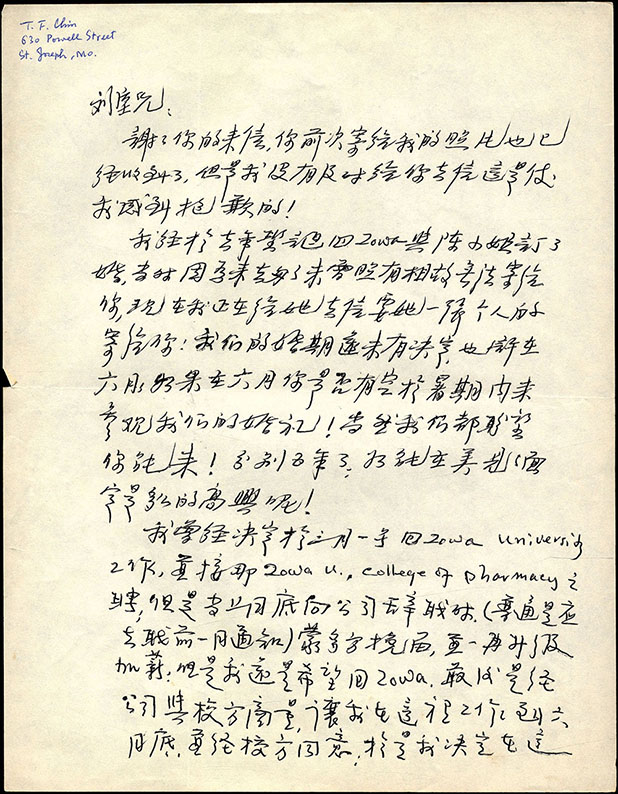 T. F. Chin
630 Powell Street
St. Joseph, Mo.
刘宝兄：
謝了你的来信，你前次寄给我的照片也已
经收到了，但是我没有及时给你去信這是使
我感到抱歉的！
我经於去年聖誕回Iowa與陈小姐訂了
婚，当时因 未旁照有相故無法寄给
你，现在我正在给她去信要她一張个人的
寄给你！我们的婚期還未有决定也許在
六月，如果在六月你是否有空於暑期内来
参观我们的婚礼！当然我们都盼望
你能来！分别五年了，好能在美
是 的高興呢！
我曾经决定於三月一号回Iowa University
工作，並接聘Iowa U., College of pharmacy之
聘，但是当 月底向公司辞职时，(普通是应
去职前一月通知)蒙多方挽留，並一再升级
加薪，但是我還是希望回Iowa，最後是经
公司與校方商量，讓我在這裡工作到六
月底，並经校方同意，於是我决定在這